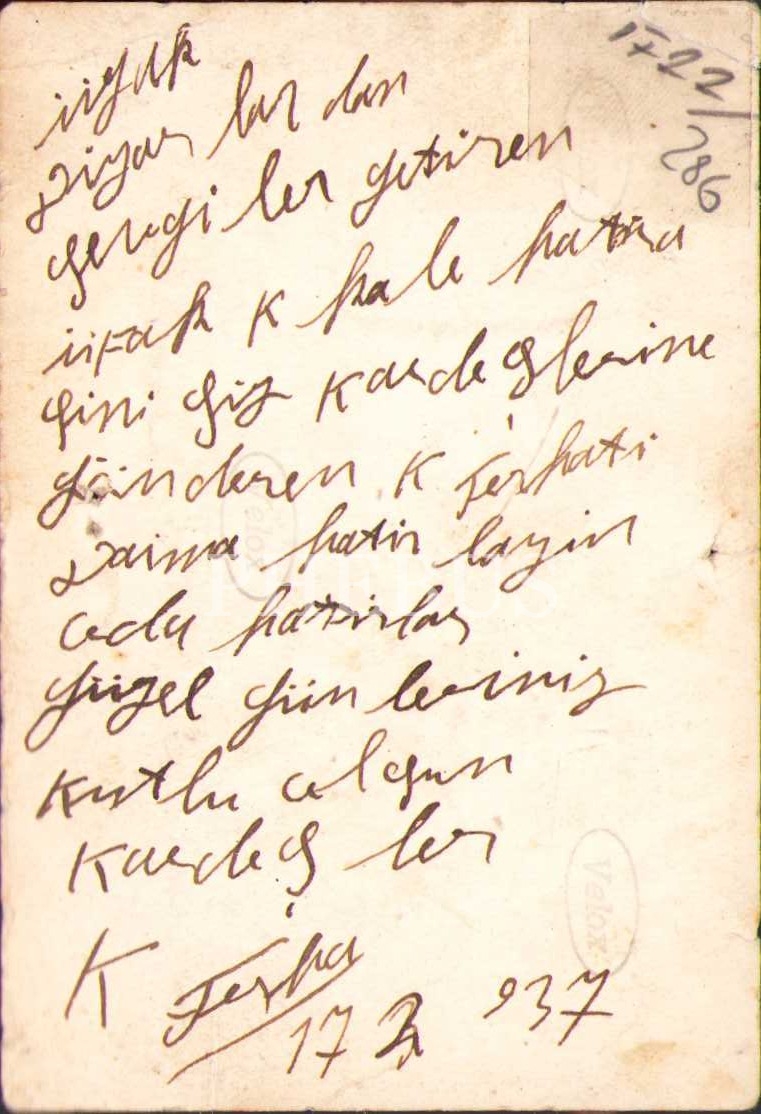 1722/
286
uzak
Diyar lar dan
sevgi ler getiren
ufak K kale hatıra
sini siz Kardeşlerine
gönderen K Ferhati
Daima hatır layın
oda hatırlar
güzel günleriniz
Kutlu olsun
Kardeş ler
K Ferha
17 3 937
Velox
Velox